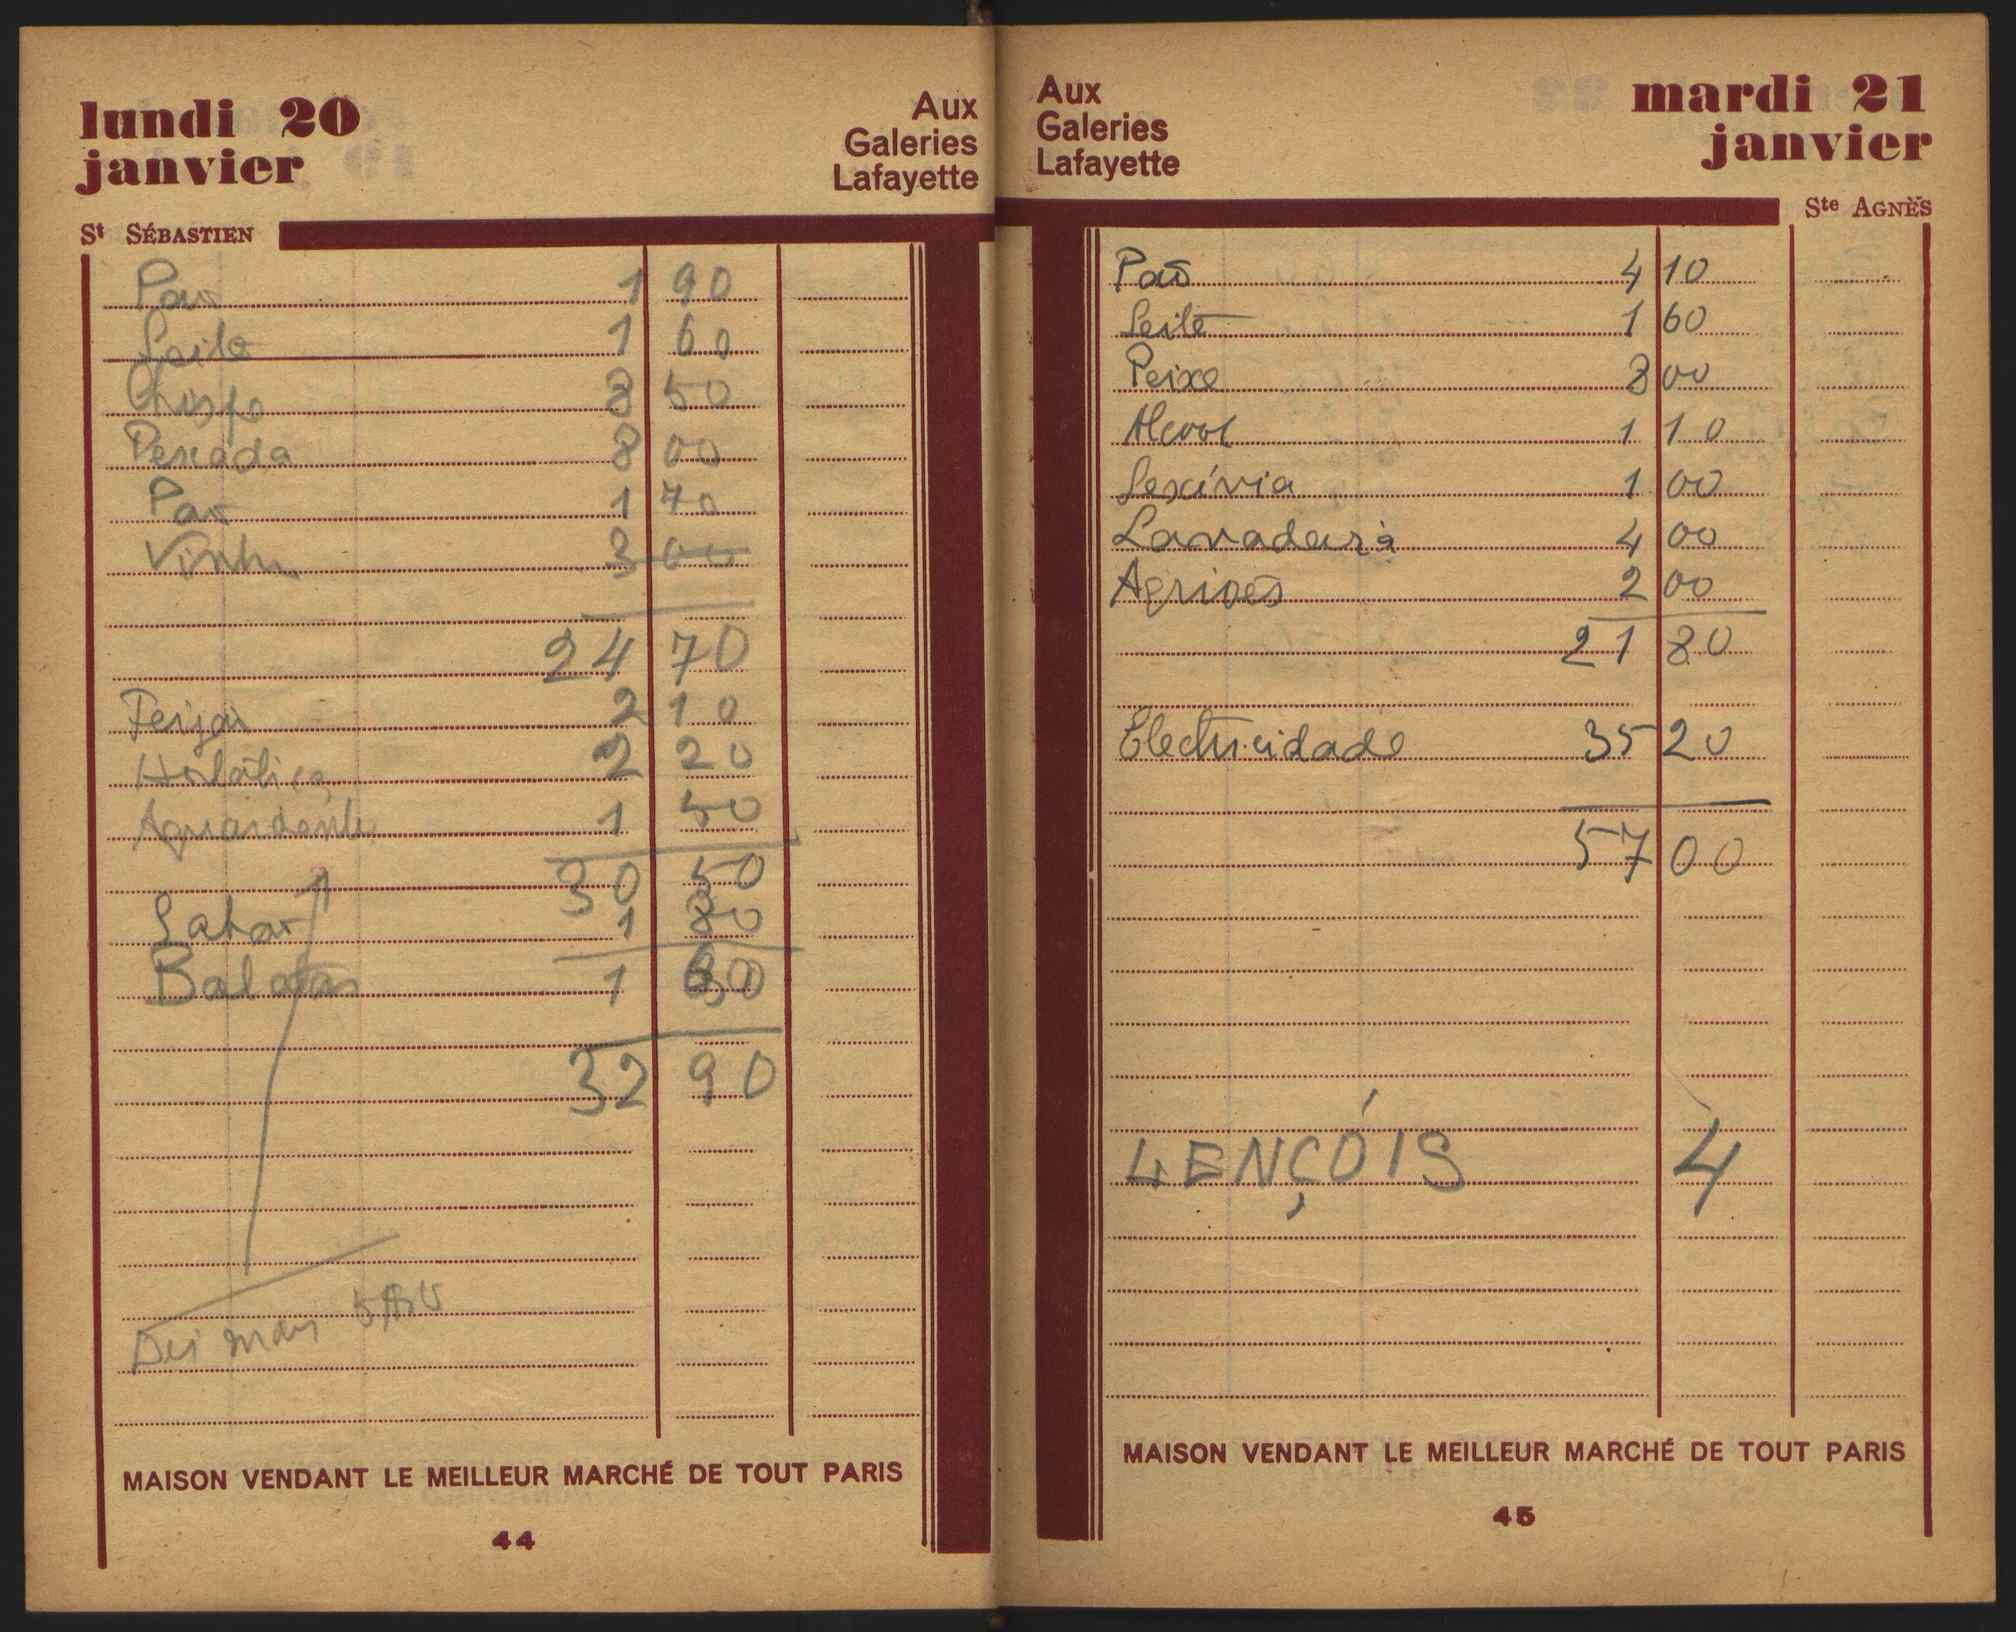 lundi 20
janvier
Aux
Galeries
Lafayette
St SÉBASTIEN
Pão 1 90
Leite 1 60
Chispe 8 50
Pescada 8 00
Pão 1 70
Vinho 3 00
24 70
Feijão 2 10
Hortaliça 2 20
Aguardente 1 50
30 50
Sabão 1 80
Batatas 1 60
32 90
Dei mais
MAISON VENDANT LE MEILLEUR MARCHÉ DE TOUT PARIS
44
Aux
Galeries
Lafayette
mardi 21
janvier
Ste AGNÈS
Pão 4 10
Leite 1 60
Peixe 8 00
Alcool 1 10
Lexívia 1 00
Lavadeira 4 00
Agriões 2 00
21 80
Electricidade 35 20
57 00
LENÇÓIS 4
MAISON VENDANT LE MEILLEUR MARCHÉ DE TOUT PARIS
45